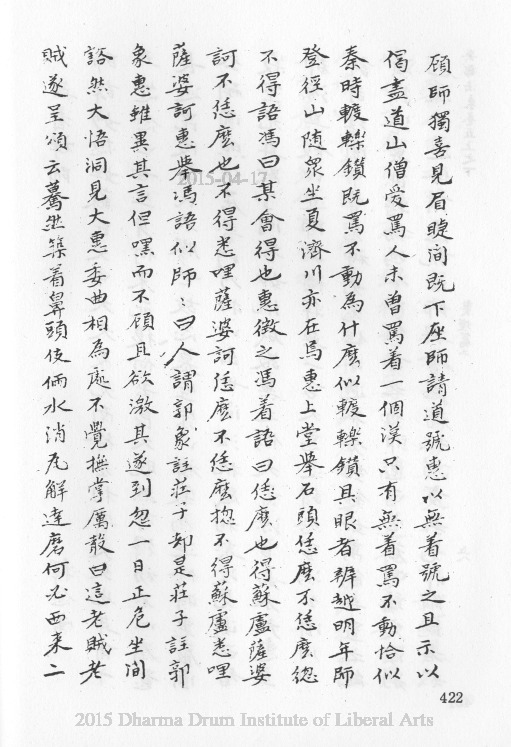 顧師獨喜見眉睫間既下座師請道號惠以無着號之且示以
偈盡道山僧愛罵人未曾罵着一個漢只有無着罵不動恰似
秦時轆轢鎖既罵不動為什麼似轆轢鎖具眼者辨越明年師
登徑山随衆坐夏濟川亦在焉惠上堂舉石頭恁麼不恁麼緫
不得語馮曰某會得也惠徵之馮着語曰恁麼也得蘇盧薩婆
訶不恁麼也不得悉哩薩婆訶恁麼不恁麼揔不得蘇盧悉哩
薩婆訶惠舉馮語似師〻曰人謂郭象註莊子却是莊子註郭
象惠雖異其言但嘿而不顧且欲激其遂到忽一日正危坐間
豁然大悟洞見大惠委曲相為處不覺撫掌厲散曰這老賊老
賊遂呈頌云驀然築着鼻頭伎倆氷消瓦解達磨何必西来二
422
2015-04-17
2015 Dharma Drum Institute of Liberal Arts